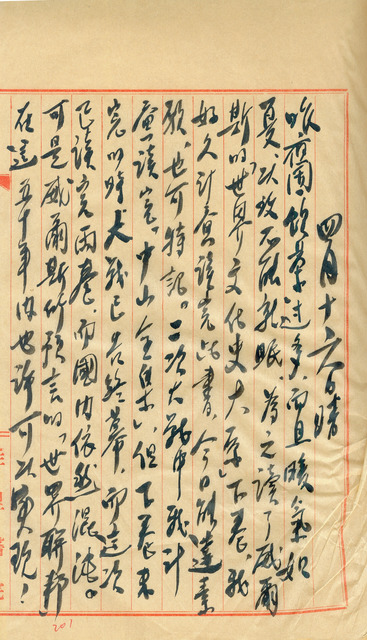 四月十六日晴
昨夜因飲草过多,而且暖氣如
夏,以致不能就眠,為之讀了威爾
斯的『世界文化史大系』下卷,我
好久計畫讀完此書,今日能達素
願,也可特記。二次大戰中我計
畫讀完『中山全集』,但下卷未
完的時大戰已告終幕,而這次
已讀完兩卷,而國内依然混沌。
可是威爾斯所預言的『世界聯邦』
在這五十年内也许可以實現!
201